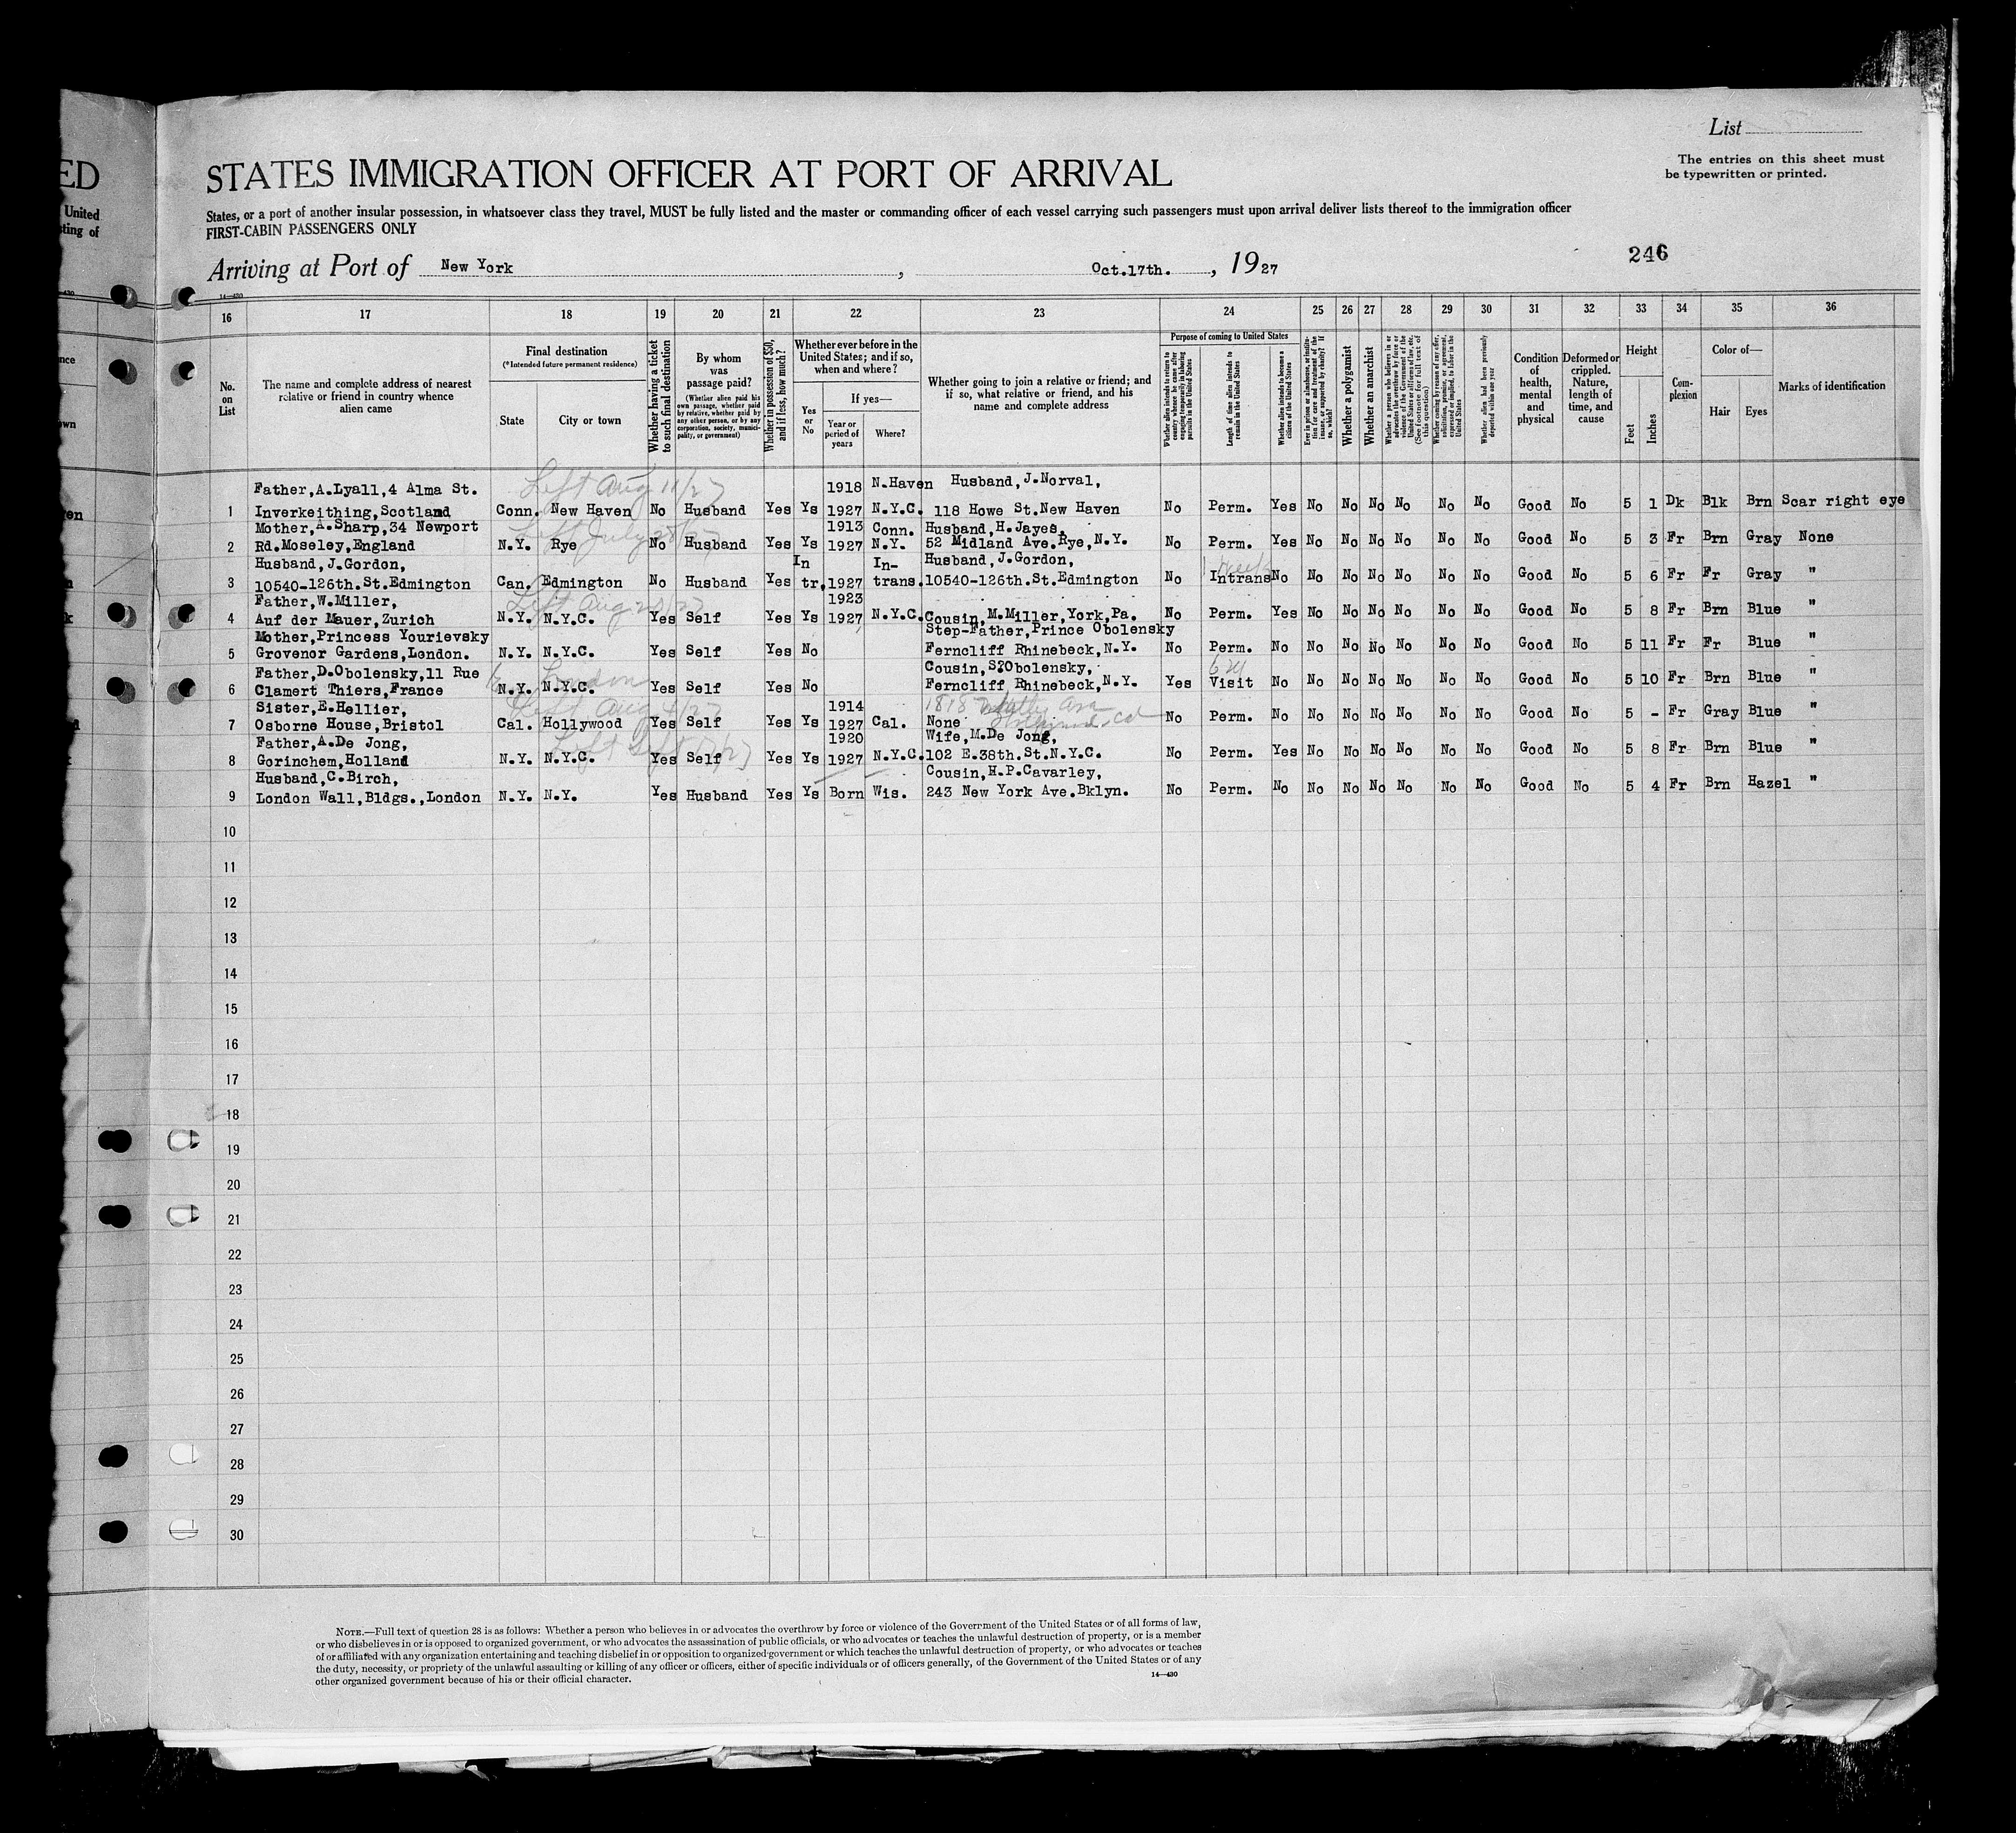 List
The entries on this sheet must
be typewritten or printed.
ED
United
sting of
STATES IMMIGRATION OFFICER AT PORT OF ARRIVAL
States, or a port of another insular possession, in whatsoever class they travel, MUST be fully listed and the master or commanding officer of each vessel carrying such passengers must upon arrival deliver lists thereof to the immigration officer
FIRST-CABIN PASSENGERS ONLY
246
Arriving at Port of New York, Oct.17th., 1927
14—430
16 17 18 19 20 21 22 23 24 25 26 27 28 29 30 31 32 33 34 35 36
No. on List
The name and complete address of nearest relative or friend in country whence alien came
Final destination
(*Intended future permanent residence)
State City or town
Whether having a ticket to such final destination
By whom was passage paid?
(Whether alien paid his own passage, whether paid by relative, whether paid by any other person, or by any corporation, society, municipality, or government)
Whether in possession of $50, and if less, how much?
Whether ever before in the United States; and if so, when and where?
Yes or No
If yes—
Year or period of years
Where?
Whether going to join a relative or friend; and if so, what relative or friend, and his name and complete address
Purpose of coming to United States
Whether alien intends to return to country whence he came after engaging temporarily in laboring pursuits in the United States
Length of time alien intends to remain in the United States
Whether alien intends to become a citizen of the United States
Ever in prison or almshouse, or institution for care and treatment of the insane, or supported by charity? If so, which?
Whether a polygamist
Whether an anarchist
Whether a person who believes in or advocates the overthrow by force or violence of the Government of the United States or all forms of law, etc. (See footnote for full text of this question)
Whether coming by reason of any offer, solicitation, promise, or agreement, expressed or implied, to labor in the United States
Whether alien had been previously deported within one year
Condition of health, mental and physical
Deformed or crippled. Nature, length of time, and cause
Height
Feet Inches
Complexion
Color of—
Hair Eyes
Marks of identification
Left Aug 11/27
Father,A.Lyall,4 Alma St. 1918 N.Haven Husband,J.Norval,
1 Inverkeithing,Scotland Conn. New Haven No Husband Yes Ys 1927 N.Y.C. 118 Howe St.New Haven No Perm. Yes No No No No No No Good No 5 1 Dk Blk Brn Scar right eye
Left July 28/27
Mother,A.Sharp,34 Newport 1913 Conn. Husband,H.Jayes,
2 Rd.Moseley,England N.Y. Rye No Husband Yes Ys 1927 N.Y. 52 Midland Ave.Rye,N.Y. No Perm. Yes No No No No No No Good No 5 3 Fr Brn Gray None
Husband,J.Gordon, In In- Husband,J.Gordon,
1 week
3 10540-126th.St.Edmington Can. Edmington No Husband Yes tr, 1927 trans. 10540-126th.St.Edmington No Intrans No No No No No No No Good No 5 6 Fr Fr Gray "
Father,W.Miller, 1923
4 Auf der Mauer,Zurich N.Y. N.Y.C. Yes Self Yes Ys 1927 N.Y.C. Cousin,M.Miller,York,Pa. No Perm. Yes No No No No No No Good No 5 8 Fr Brn Blue "
Mother,Princess Yourievsky Step-Father,Prince Obolensky
5 Grovenor Gardens,London. N.Y. N.Y.C. Yes Self Yes No Ferncliff Rhinebeck,N.Y. No Perm. No No No No No No No Good No 5 11 Fr Fr Blue "
London
Father,D.Obolensky,11 Rue Cousin,S.Obolensky,
6 Clamert Thiers,France N.Y. N.Y.C. Yes Self Yes No Ferncliff Rhinebeck,N.Y. Yes Visit No No No No No No No Good No 5 10 Fr Brn Blue "
Left Aug 4/27
Sister,E.Hellier, 1914
7 Osborne House,Bristol Cal. Hollywood Yes Self Yes Ys 1927 Cal. None No Perm. No No No No No No No Good No 5 - Fr Gray Blue "
Father,A.De Jong, 1920 Wife,M.De Jong,
8 Gorinchem,Holland N.Y. N.Y.C. Yes Self Yes Ys 1927 N.Y.C. 102 E.38th.St.N.Y.C. No Perm. Yes No No No No No No Good No 5 8 Fr Brn Blue "
Husband,C.Birch, Cousin,H.P.Cavarley,
9 London Wall,Bldgs.,London N.Y. N.Y. Yes Husband Yes Ys Born Wis. 243 New York Ave.Bklyn. No Perm. No No No No No No No Good No 5 4 Fr Brn Hazel "
10
11
12
13
14
15
16
17
18
19
20
21
22
23
24
25
26
27
28
29
30
NOTE.—Full text of question 28 is as follows: Whether a person who believes in or advocates the overthrow by force or violence of the Government of the United States or of all forms of law,
or who disbelieves in or is opposed to organized government, or who advocates the assassination of public officials, or who advocates or teaches the unlawful destruction of property, or is a member
of or affiliated with any organization entertaining and teaching disbelief in or opposition to organized government or which teaches the unlawful destruction of property, or who advocates or teaches
the duty, necessity, or propriety of the unlawful assaulting or killing of any officer or officers, either of specific individuals or of officers generally, of the Government of the United States or of any
other organized government because of his or their official character.
14—430